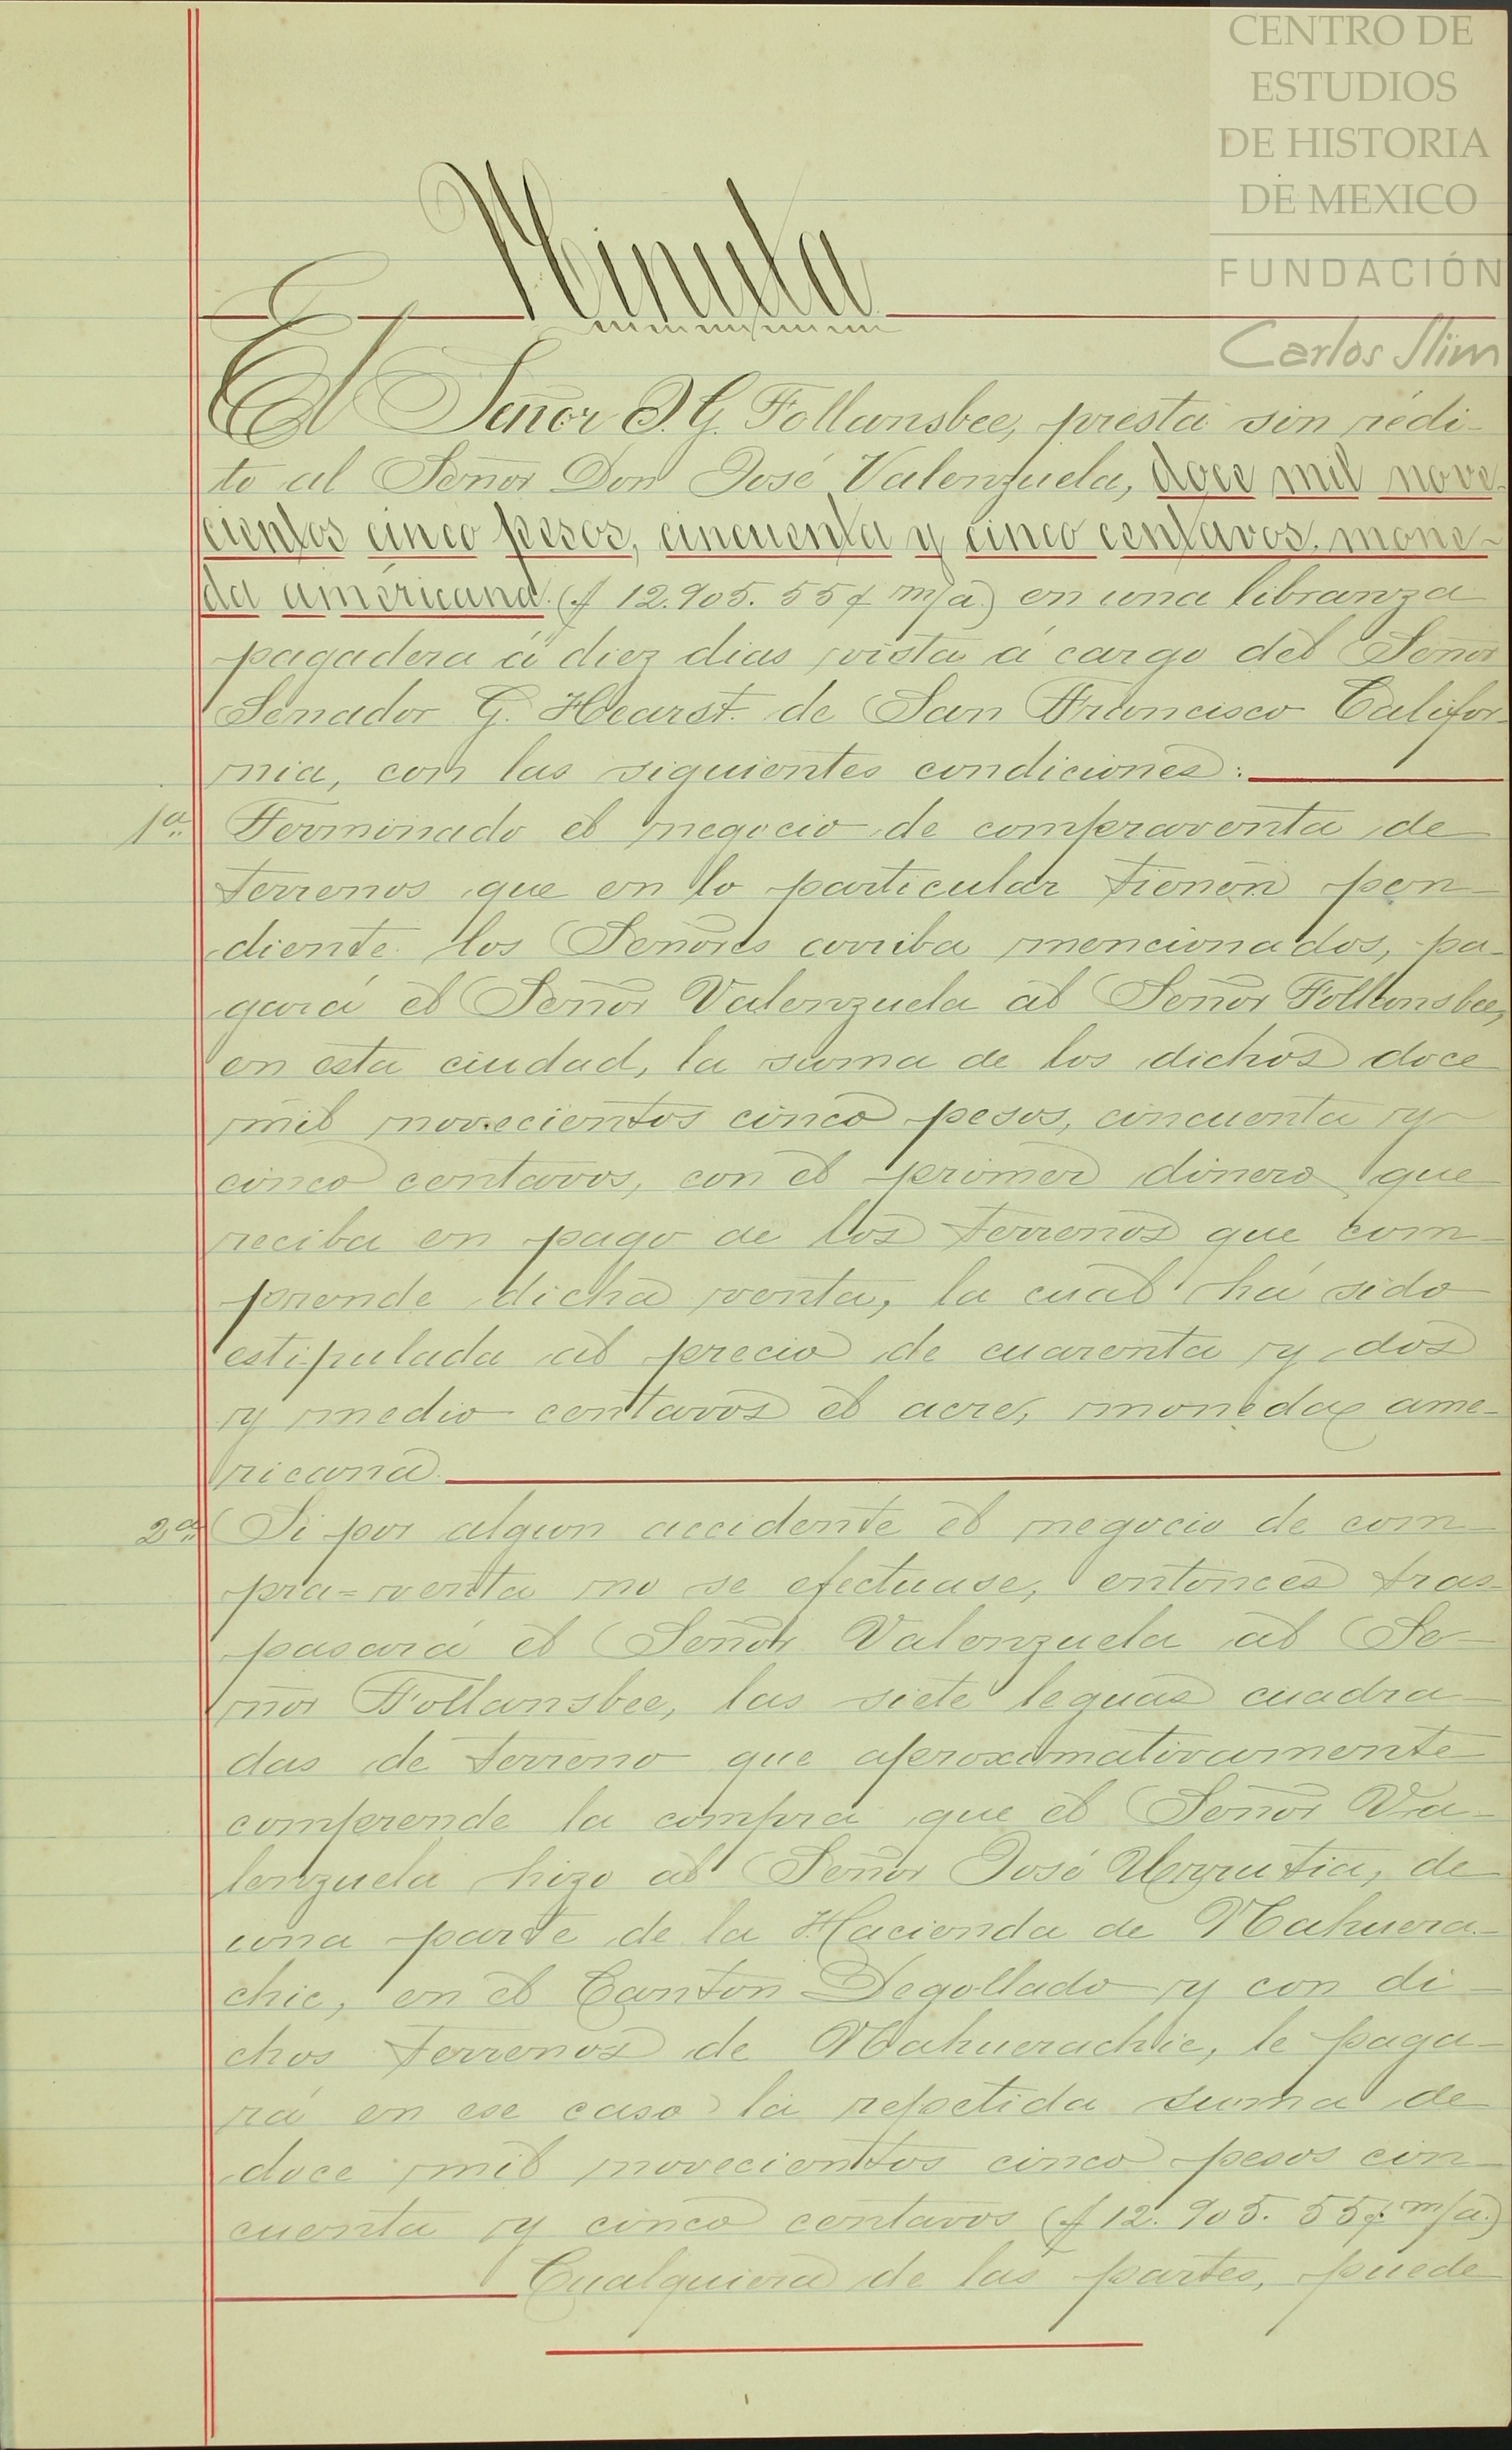 CENTRO DE
ESTUDIOS
DE HISTORIA
DE MEXICO
FUNDACIÓN
Carlos Slim
Minuta
El Señor J. G. Follansbee, presta sin rédi-
to al Señor Don José Valenzuela, doce mil nove-
cientos cinco pesos, cincuenta y cinco centavos. mone-
da américana. ($ 12.905. 55¢ m/a.) en una libranza
pagadera á diez dias vista á cargo del Señor
Senador G. Hearst. de San Francisco Califor-
nia, con las siguientes condiciones:
1a. Terminado el negocio de compraventa de
terrenos que en lo particular tienen pen-
diente los Señores arriba mencionados, pa-
gará el Señor Valenzuela al Señor Follansbee,
en esta ciudad, la suma de los dichos doce
mil novecientos cinco pesos, cincuenta y
cinco centavos, con el primer dinero que
reciba en pago de los terrenos que com-
prende dicha venta, la cual há sido
estipulada al precio de cuarenta y dos
y medio centavos el acre, moneda ame-
ricana.
2a. Si por algun accidente el negocio de com-
pra=venta no se efectuase, entonces tras-
pasará el Señor Valenzuela al Se-
ñor Follansbee, las siete leguas cuadra-
das de terreno que aproximativamente
comprende la compra que el Señor Va-
lenzuela hizo al Señor José Urrutia, de
una parte de la Hacienda de Nahuera-
chic, en el Canton Degollado y con di-
chos terrenos de Nahuerachic, le paga-
rá en ese caso la repetida suma de
doce mil novecientos cinco pesos cin-
cuenta y cinco centavos ($ 12. 905. 55¢. m/a.)
Cualquiera de las partes, puede